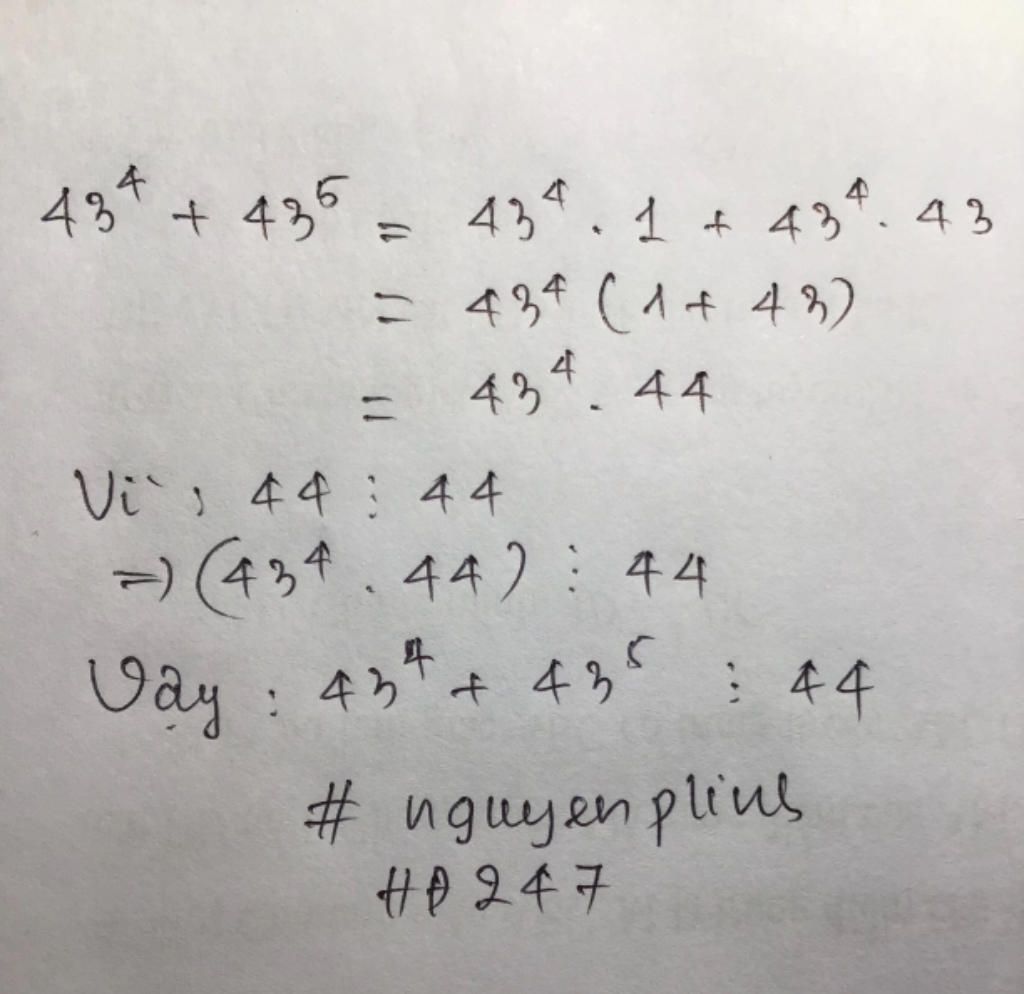 43⁴ + 43⁵ = 43⁴ . 1 + 43⁴ . 43
= 43⁴ (1 + 43)
= 43⁴ . 44
Vì : 44 ⋮ 44
=> (43⁴ . 44) ⋮ 44
Vậy : 43⁴ + 43⁵ ⋮ 44
# nguyenplius
HĐ247